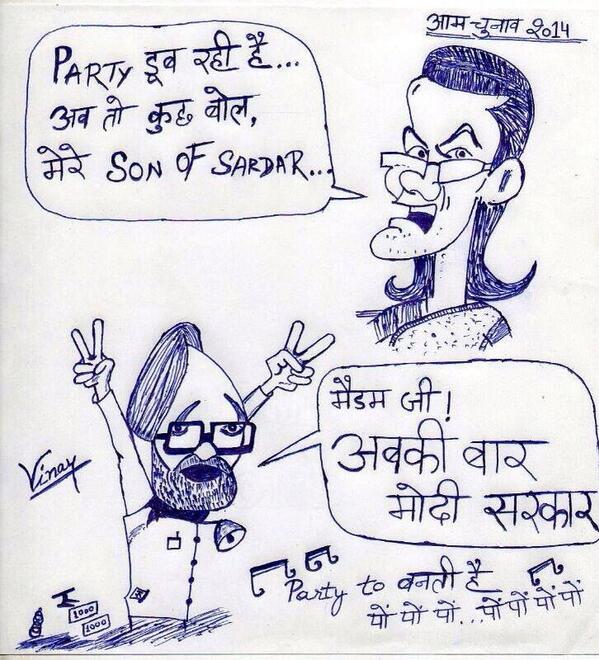 आम चुनाव २०14
PARTY डूब रही है...
अब तो कुछ बोल,
मेरे SON OF SARDAR...
मैडम जी!
अबकी बार
मोदी सरकार
Vinay
1000
1000
Party to बनती है
पों पों पों...पों पों पों पों